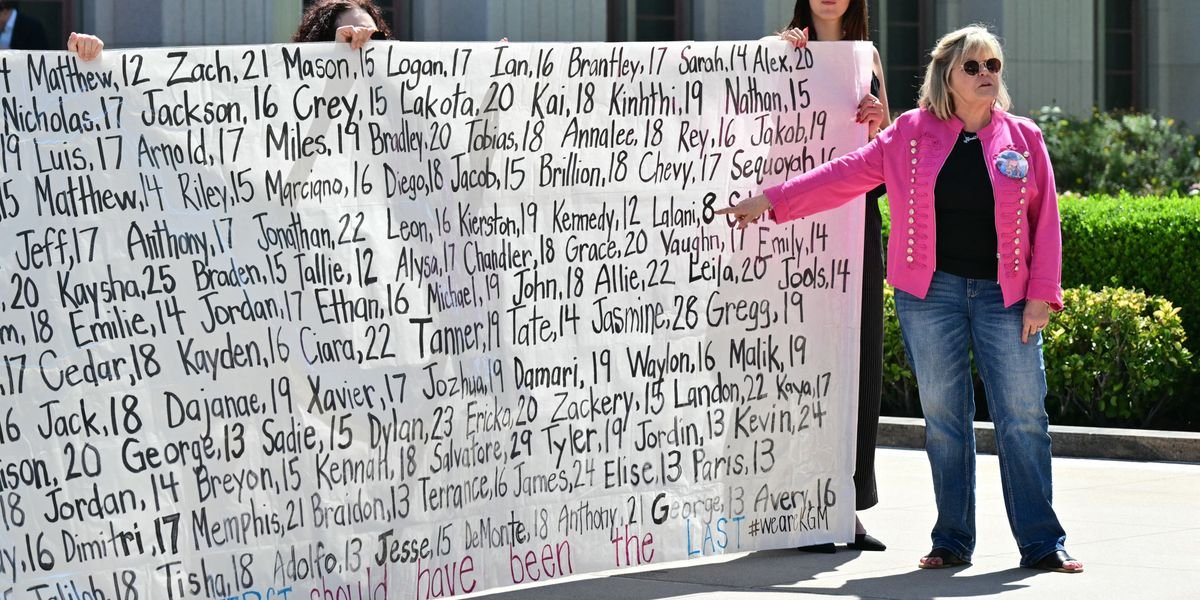 4 Matthew, 12 Zach, 21 Mason, 15 Logan, 17 Ian, 16 Brantley, 17 Sarah, 14 Alex, 20
Nicholas, 17 Jackson, 16 Crey, 15 Lakota, 20 Kai, 18 Kinhthi, 19 Nathan, 15
19 Luis, 17 Arnold, 17 Miles, 19 Bradley, 20 Tobias, 18 Annalee, 18 Rey, 16 Jakob, 19
15 Matthew, 14 Riley, 15 Marciano, 16 Diego, 18 Jacob, 15 Brillion, 18 Chevy, 17 Sequoyah, 16
Jeff, 17 Anthony, 17 Jonathan, 22 Leon, 16 Kierston, 19 Kennedy, 12 Lalani, 8
20 Kaysha, 25 Braden, 15 Tallie, 12 Alysa, 17 Chandler, 18 Grace, 20 Vaughn, 17 Emily, 14
18 Emilie, 14 Jordan, 17 Ethan, 16 Michael, 19 John, 18 Allie, 22 Leila, 20 Jools, 14
17 Cedar, 18 Kayden, 16 Ciara, 22 Tanner, 19 Tate, 14 Jasmine, 26 Gregg, 19
16 Jack, 18 Dajanae, 19 Xavier, 17 Jozhua, 19 Damari, 19 Waylon, 16 Malik, 19
20 George, 13 Sadie, 15 Dylan, 23 Ericka, 20 Zackery, 15 Landon, 22 Kava, 17
18 Jordan, 14 Breyon, 15 Kennah, 18 Salvatore, 29 Tyler, 19 Jordin, 13 Kevin, 24
16 Dimitri, 17 Memphis, 21 Braldon, 13 Terrance, 16 James, 24 Elise, 13 Paris, 13
18 Tisha, 18 Adolfo, 13 Jesse, 15 DeMonte, 18 Anthony, 21 George, 13 Avery, 16
should have been the LAST #weareKGM